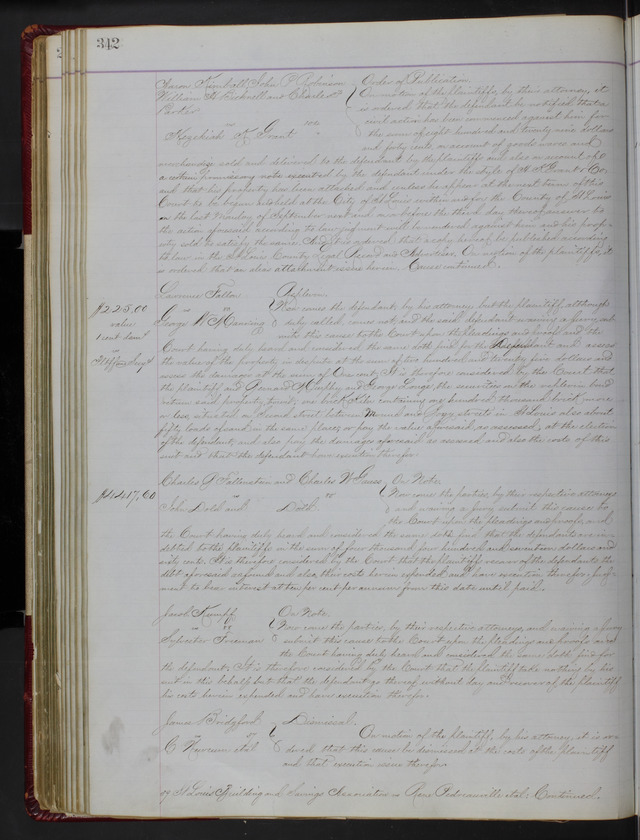 342
Aaron Kimball, John P. Robinson
William H. and Charles
Parker
vs
Hezekiah K. Grant
Order of Publication.
On motion of the plaintiffs, by their attorney, it
is ordered that the defendant be notified that a
civil action has been commenced against him for
the sum of eight hundred and twenty nine dollars
and fifty cents, on account of goods wares and
merchandise sold and delivered to the defendant by the plaintiffs and also on account of
a certain promissory note executed by the defendant under the style of & Co.
and that his property has been attached and unless he appear at the next term of this
Court to be begun and held at the City of St Louis within and for the County of St Louis
on the last Monday of September next and on or before the third day thereof answer to
the action aforesaid according to law judgment will be rendered against him and his prop-
erty sold to satisfy the same. And it is ordered that a copy hereof be published according
to law in the St Louis County Legal Record and Advertiser. On motion of the plaintiffs, it
is ordered that an alias attachment issue herein. Cause continued.
Lawrence Fallon
vs
George W. Manning
Replevin.
Now comes the defendant, by his attorney but the plaintiff, although
duly called, comes not, and the said defendant waiving a jury, sub-
mits this cause to the Court upon the pleadings and proof and the
$225.00
value
1 cent
Court having duly heard and considered the same doth find for the Defendant and assess
the value of the property in dispute at the sum of two hundred and twenty five dollars and
assess the damages at the sum of One cent. It is therefore considered by the Court that
the plaintiff and Murphy and George the securities in the replevin bond
return said property, to wit; one brick Kiln containing one hundred thousand brick more
or less, situated on street between and streets in St Louis also about
fifty loads of sand in the same place, or pay the value aforesaid, as assessed, at the election
of the defendant, and also pay the damages aforesaid as assessed and also the costs of this
suit and that the defendant have execution therefor.
$4417.60
Charles P. and Charles W.
vs
John Dold and Dold
On Note.
Now come the parties, by their respective attorneys
and waiving a jury submit this cause to
the Court upon the pleadings and proofs, and
the Court having duly heard and considered the same doth find that the defendants are in-
debted to the plaintiffs in the sum of four thousand four hundred and seventeen dollars and
sixty cents. It is therefore considered by the Court that the plaintiffs recover of the defendants the
debt aforesaid as found and also their costs herein expended and have execution therefor. Judg-
ment to bear interest at ten per cent per annum from this date until paid.
Jacob Kumpf
vs
Sylvester Freeman
On Note.
Now come the parties, by their respective attorneys, and waiving a jury
submit this cause to the Court upon the pleadings and proofs and
the Court having duly heard and considered the same doth find for
the defendant; It is therefore considered by the Court that the plaintiff take nothing by his
suit in this behalf but that the defendant go thereof without day and recover of the plaintiff
his costs herein expended and have execution therefor.
James Bridgford
vs
C et al
Dismissal.
On motion of the plaintiff, by his attorney, it is or-
dered that this cause be dismissed at the costs of the plaintiff
and that execution issue therefor.
St Louis Building and Savings Association vs Rene et al: Continued.